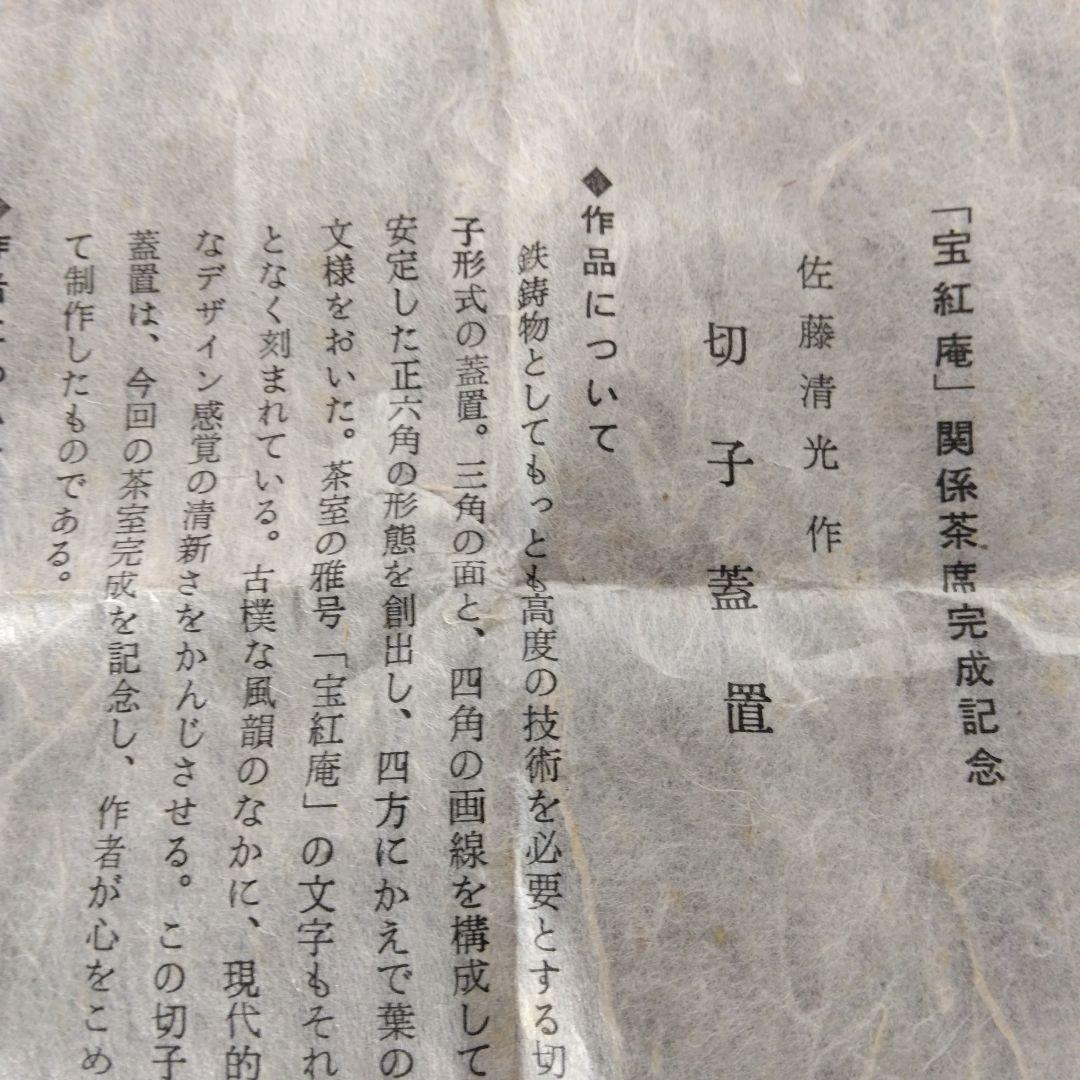 「宝紅庵」関係茶席完成記念
佐藤清光 作
切子蓋置
◆作品について
鉄鋳物としてもっとも高度の技術を必要とする切
子形式の蓋置。三角の面と、四角の画線を構成して
安定した正六角の形態を創出し、四方にかえで葉の
文様をおいた。茶室の雅号「宝紅庵」の文字もそれ
となく刻まれている。古樸な風韻のなかに、現代的
なデザイン感覚の清新さをかんじさせる。この切子
蓋置は、今回の茶室完成を記念し、作者が心をこめ
て制作したものである。